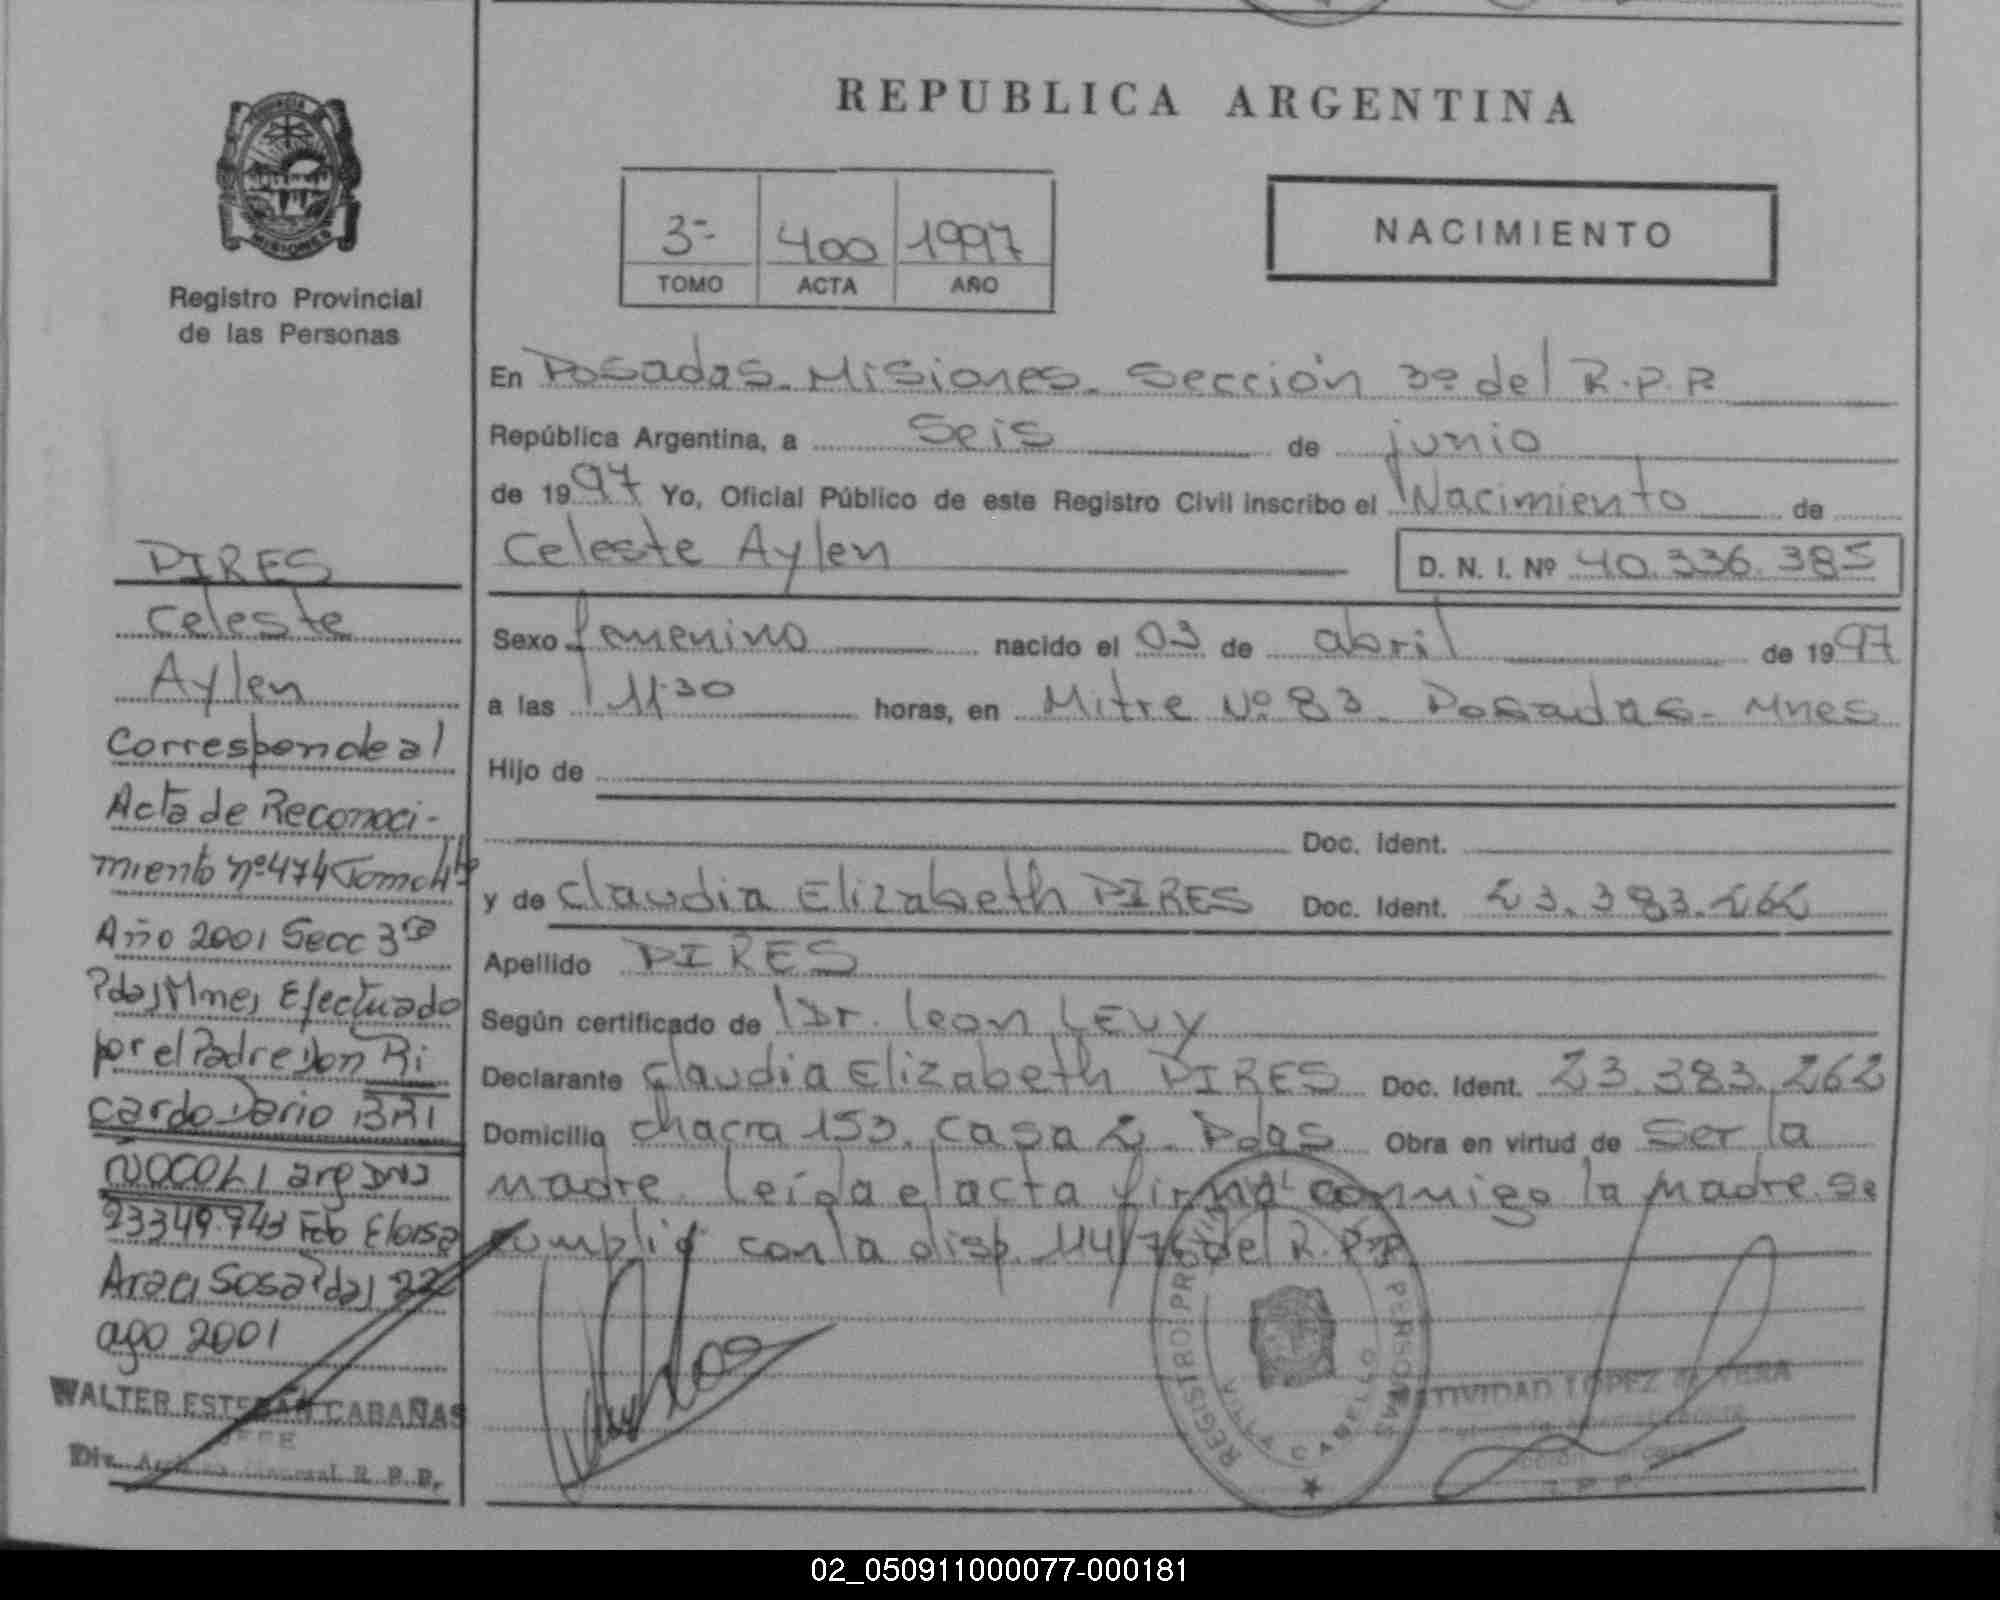 REPUBLICA ARGENTINA
MISIONES
Registro Provincial
de las Personas
3º 400 1997
TOMO ACTA AÑO
NACIMIENTO
En Posadas. Misiones. Sección 3º del R.P.P.
República Argentina, a Seis de junio
de 1997 Yo, Oficial Público de este Registro Civil inscribo el Nacimiento de
Celeste Aylen D. N. I. Nº 40.336.385
Sexo femenino nacido el 03 de abril de 1997
a las 11.30 horas, en Mitre Nº 83. Posadas. Mnes
Hijo de
Doc. Ident.
y de Claudia Elizabeth PIRES Doc. Ident. 23.383.262
Apellido PIRES
Según certificado de Dr. Leon LEVY
Declarante Claudia Elizabeth PIRES Doc. Ident. 23.383.262
Domicilio Chacra 153. Casa 2. Pdas Obra en virtud de Ser la
madre. Leída el acta firma conmigo la madre. Se
cumplió con la disp. 114/76 del R.P.P.
PIRES
Celeste
Aylen
Corresponde al
Acta de Reconoci-
miento nº 474 Tomo 4º
Año 2001 Secc 3ª
Pdas Mnes Efectuado
por el Padre Don Ri
cardo Dario
arg DNI
23349.743 Fdo Eloisa
Sosa Pdas 22
ago 2001
WALTER ESTEBAN CABAÑAS
JEFE
Div. Archivo General R. P. P.
REGISTRO PROVINCIAL PERSONAS
VILLA CABELLO
NATIVIDAD LOPEZ
R. P. P.
02_050911000077-000181